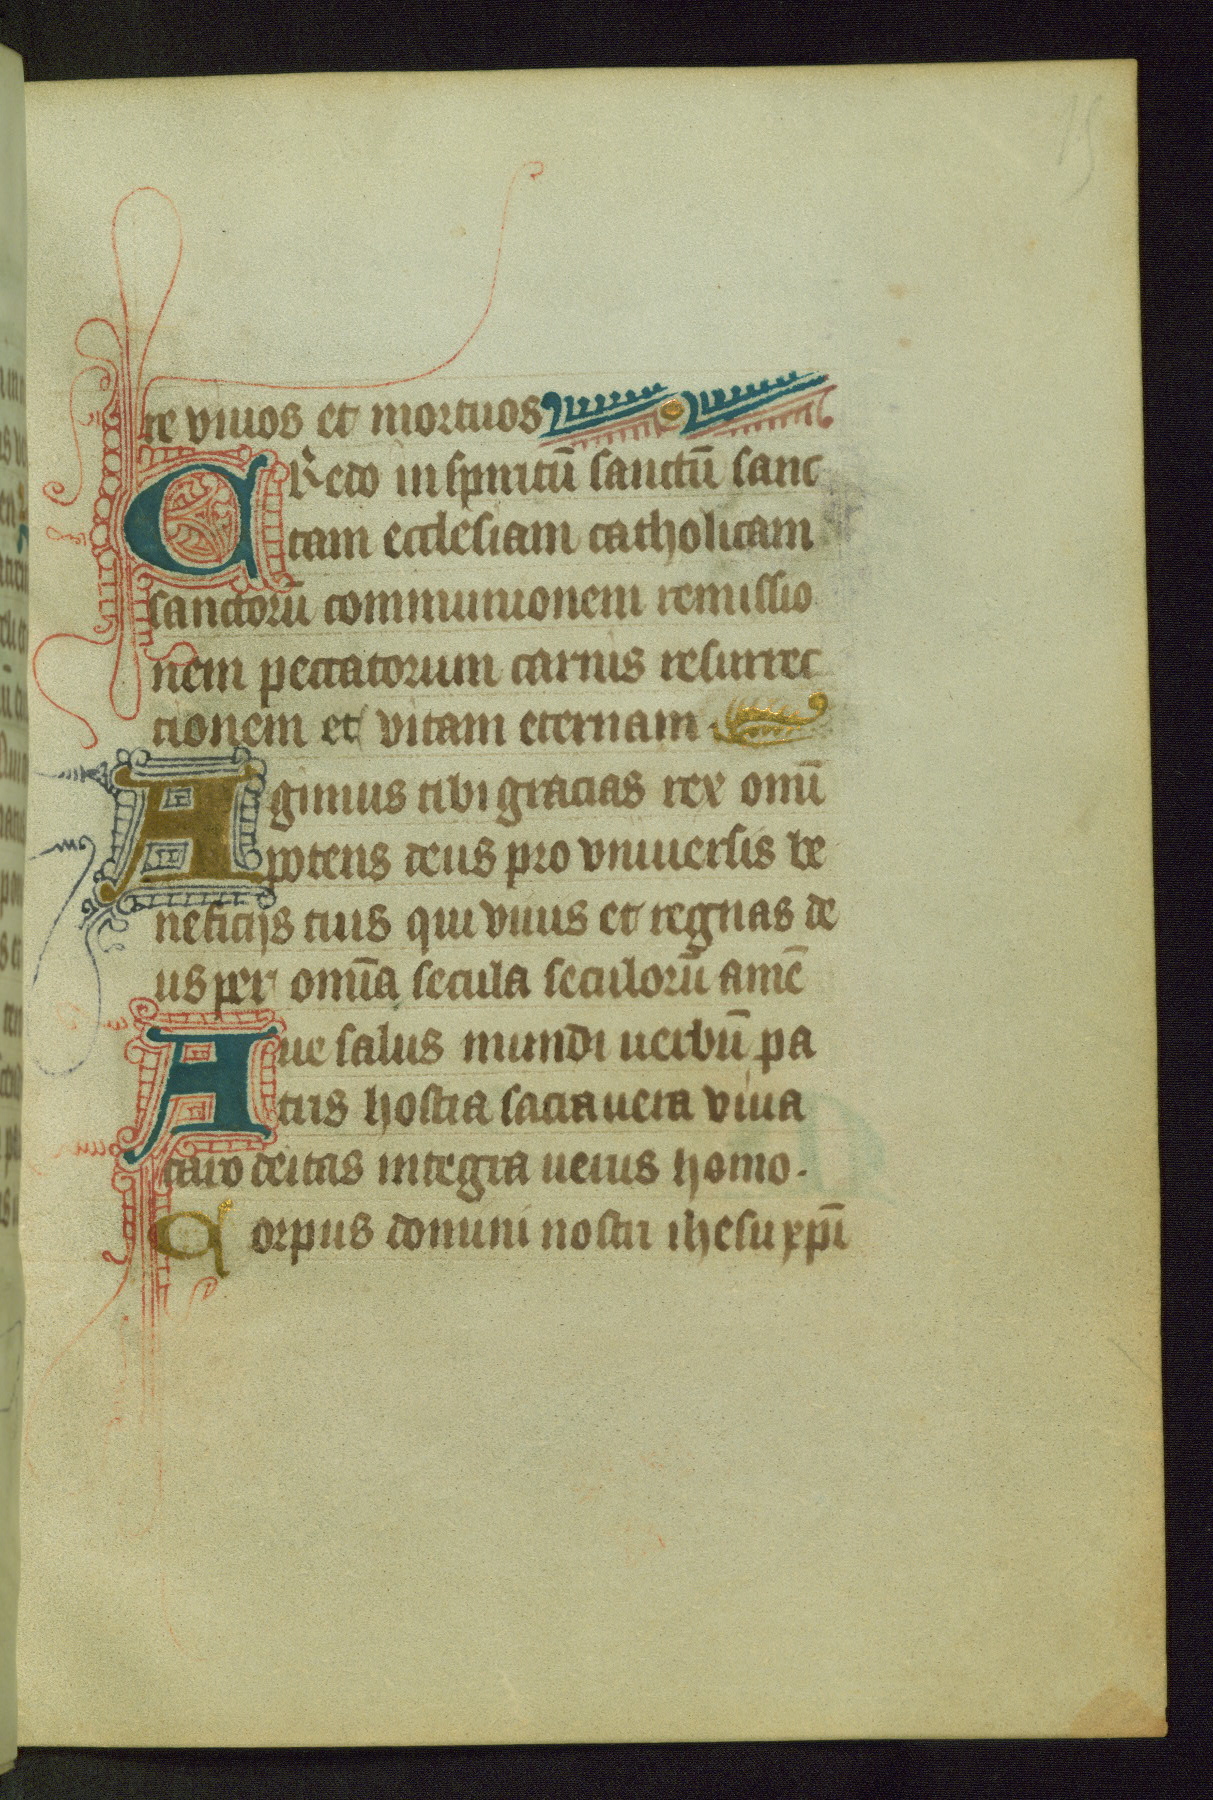 15
re viuos et mortuos
CRedo in spiritū sanctū sanc
tam ecclesiam catholicam
sanctorū communionem remissio
nem peccatorum carnis resurrec
tionem et vitam eternam
Agimus tibi gracias rex omnī
potens deus pro vniuersis be
neficijs tuis qui viuis et regnas de
us per omīa secula seculorū amē
Aue salus mundi uerbū pa
tris hostia sacra uera viua
caro deitas integra uerus homo.
Corpus domini nostri ihesu xpī